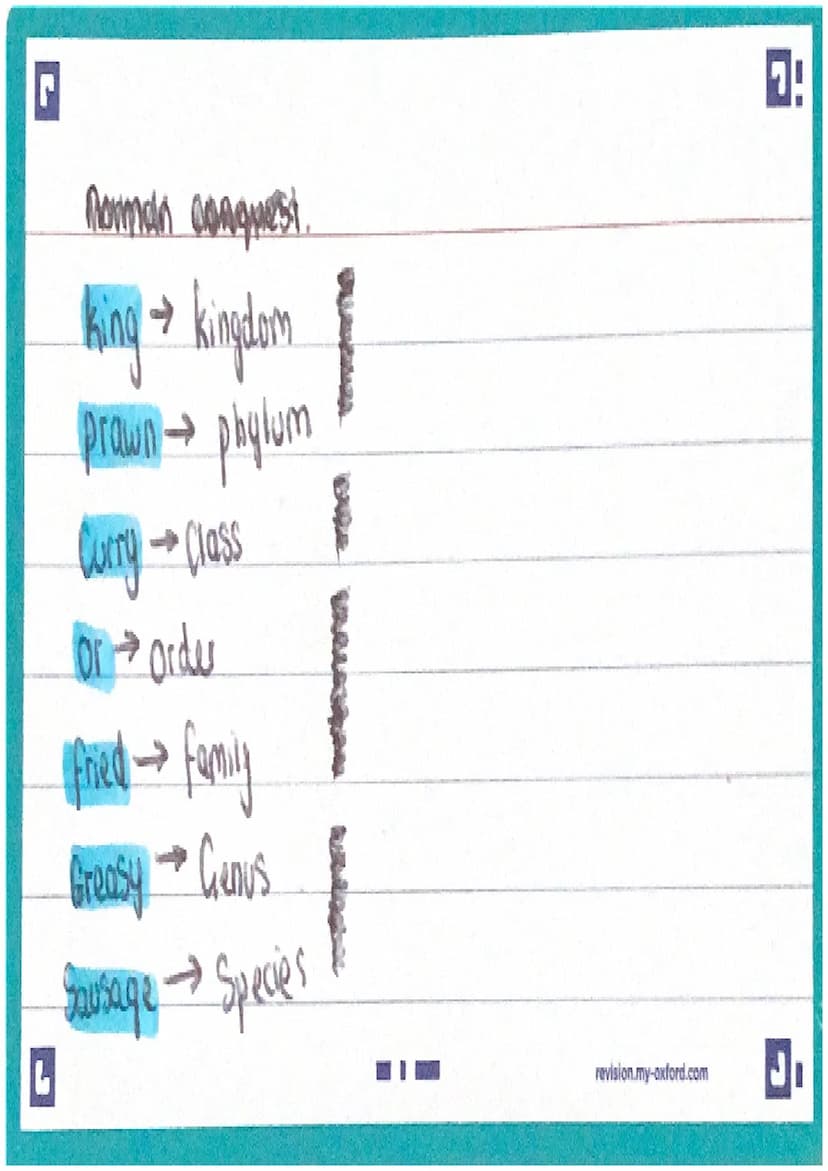 Norman conquest.
King → kingdom
prawn → phylum
Curry → Class
or → order
fried → family
Greasy → Genus
Sausage → Species
revision.my-oxford.com